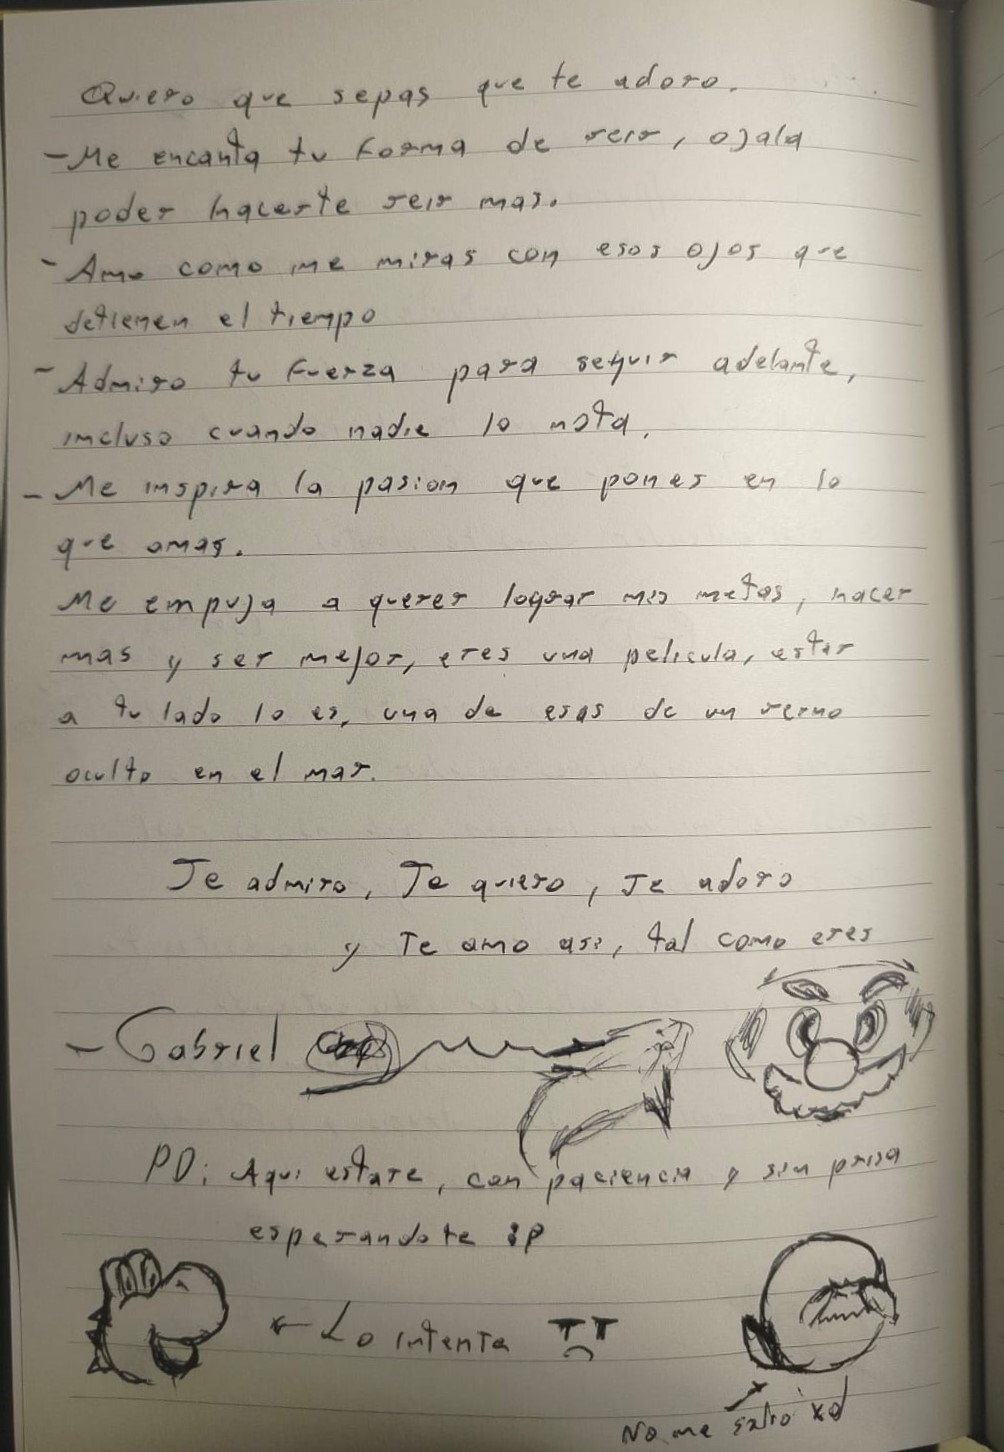 Quiero que sepas que te adoro.
- Me encanta tu forma de reir, ojala
poder hacerte reir mas.
- Amo como me miras con esos ojos que
detienen el tiempo
- Admiro tu fuerza para seguir adelante,
incluso cuando nadie lo nota.
- Me inspira la pasion que pones en lo
que amas.
Me empuja a querer lograr mis metas, hacer
mas y ser mejor, eres una pelicula, estar
a tu lado lo es, una de esas de un reino
oculto en el mar.
Te admiro, Te quiero, Te adoro
y Te amo asi, tal como eres
- Gabriel
PD: Aqui estare, con paciencia y sin prisa
esperandote :P
← Lo intenta TT
No me salio xd